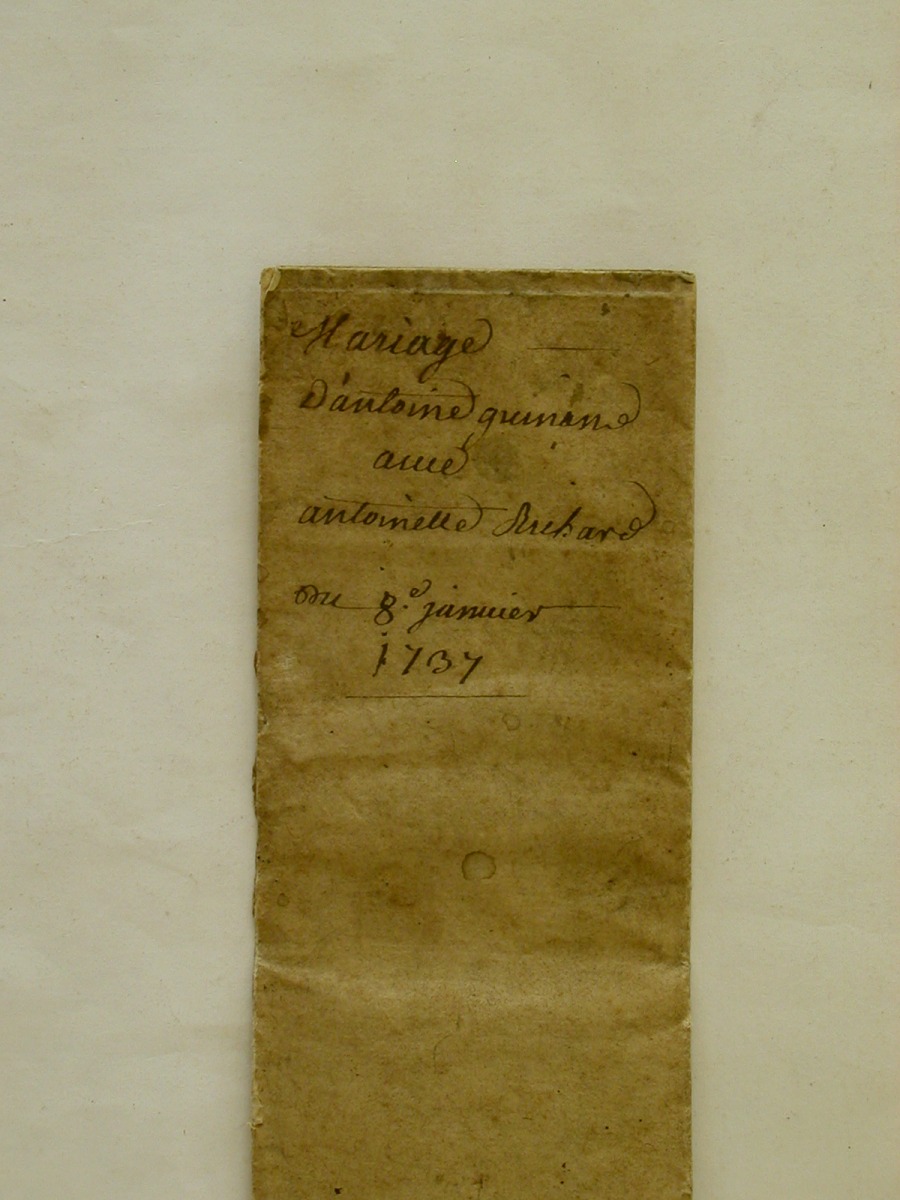 Mariage
D'antoine guinand
avec
antoinette Richard
Du 8.e janvier
1737